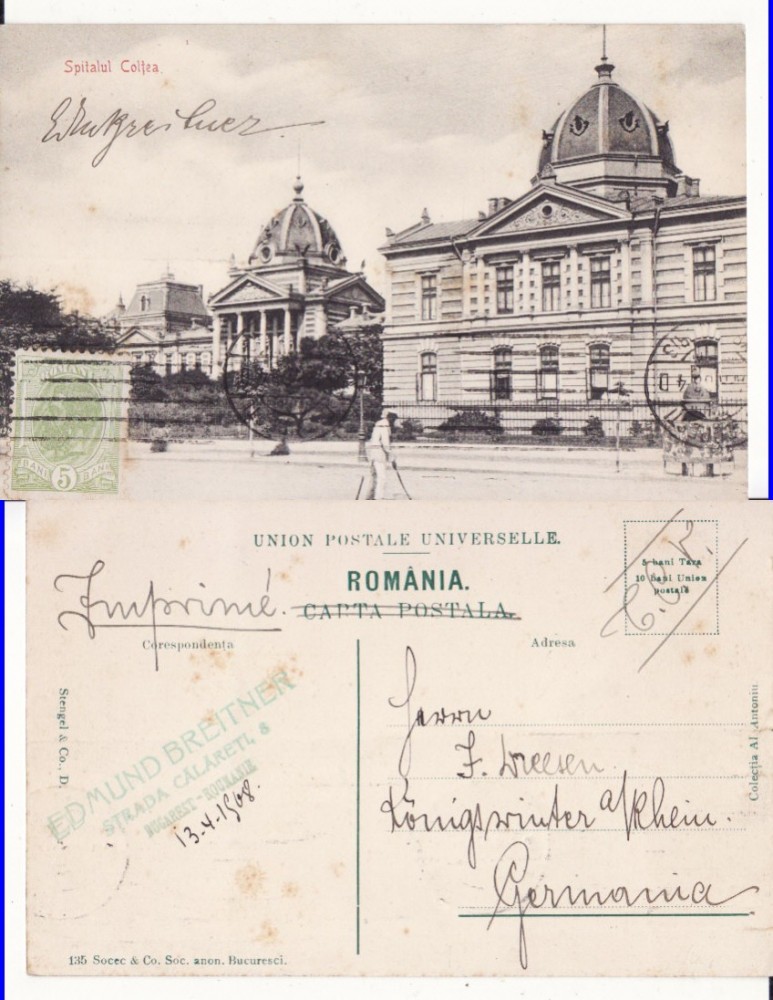 Spitalul Colțea
Edm Breitner
ROMANIA
BANI 5 BANI
UNION POSTALE UNIVERSELLE.
ROMÂNIA.
CARTA POSTALA.
5 bani Țara
10 bani Union
postale
T.C.V.
Imprimé.
Corespondența
Adresa
Stengel & Co., D.
EDMUND BREITNER
STRADA CĂLĂREȚI, 8
BUCAREST - ROUMANIE
13-4-1908.
Herrn
F. Dreesen.
Königswinter a/Rhein.
Germania
Colecția Al Antoniu
135 Socec & Co. Soc. anon. Bucuresci.